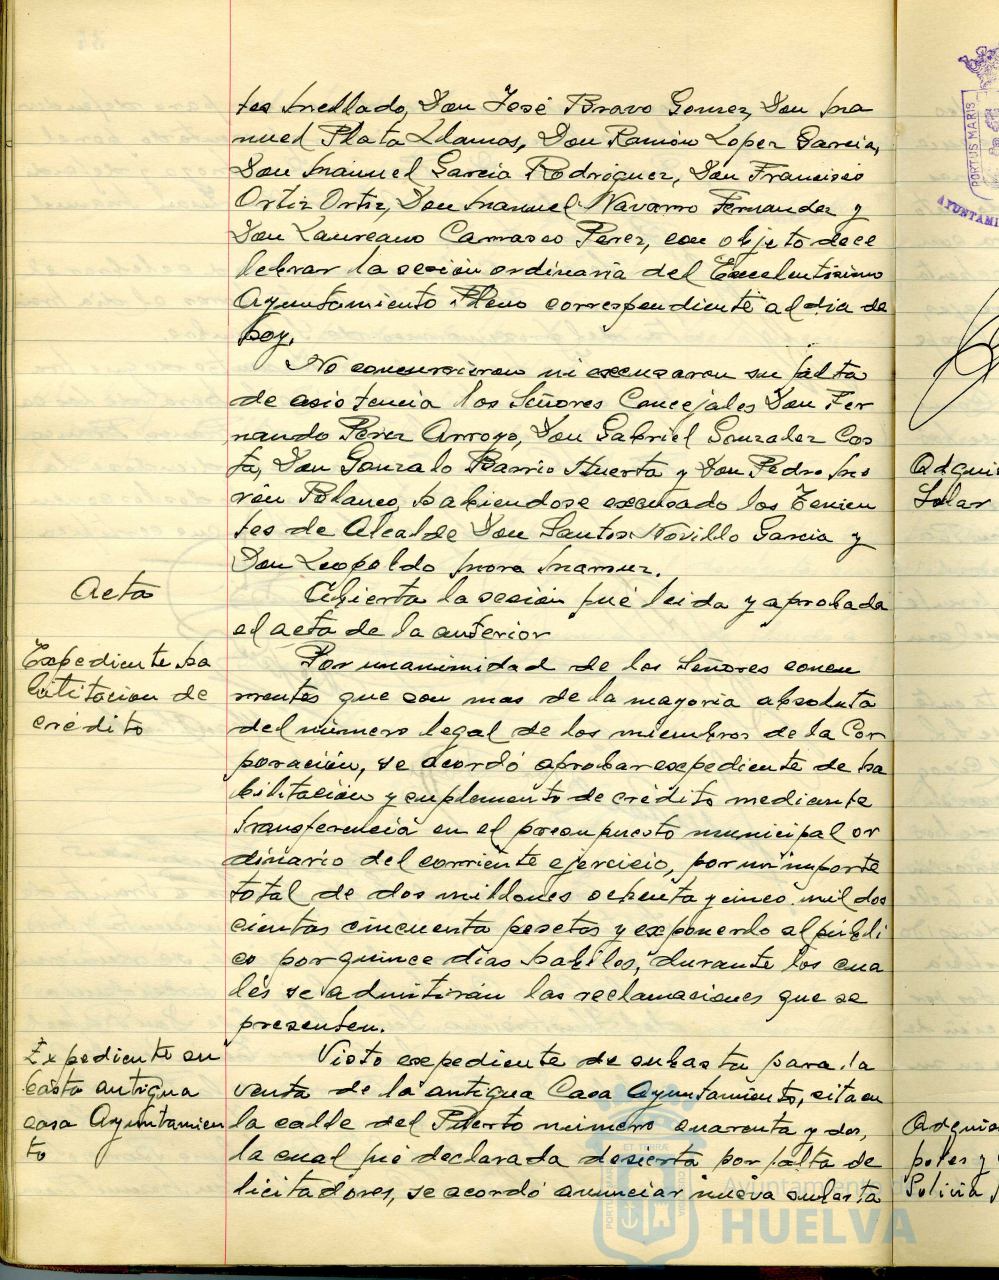 tos Mellado, Don José Bravo Gomez, Don Ma
nuel Plata Llamas, Don Ramón Lopez Garcia,
Don Manuel Garcia Rodriguez, Don Francisco
Ortiz Ortiz, Don Manuel Navarro Fernandez y
Don Laureano Carrasco Perez, con objeto de ce
lebrar la sesión ordinaria del Excelentisimo
Ayuntamiento Pleno correspondiente al dia de
hoy.
No concurrieron ni excusaron su falta
de asistencia los Señores Concejales Don Fer
nando Perez Arroyo, Don Gabriel Gonzalez Cos
ta, Don Gonzalo Barrio Huerta y Don Pedro Mo
rón Polanco, habiendose excusado los Tenien
tes de Alcalde Don Santos Novillo Garcia y
Don Leopoldo Mora
Acta
Abierta la sesión fué leida y aprobada
el acta de la anterior
Expediente ha
bilitacion de
crédito
Por unanimidad de los Señores concu
rrentes que son mas de la mayoria absoluta
del número legal de los miembros de la Cor
poración, se acordó aprobar expediente de ha
bilitación y suplemento de crédito mediante
transferencia en el presupuesto municipal or
dinario del corriente ejercicio, por un importe
total de dos millones ochenta y cinco mil dos
cientas cincuenta pesetas y exponerlo al públi
co por quince dias habiles, durante los cua
les se admitirán las reclamaciones que se
presenten.
Expediente su
basta antigua
casa Ayuntamien
to
Visto expediente de subasta para la
venta de la antigua Casa Ayuntamiento, sita en
la calle del Puerto número cuarenta y dos,
la cual fué declarada desierta por falta de
licitadores, se acordó anunciar nueva subasta
Solar
PORTUS MARIS
Ayuntamiento d
HUELVA